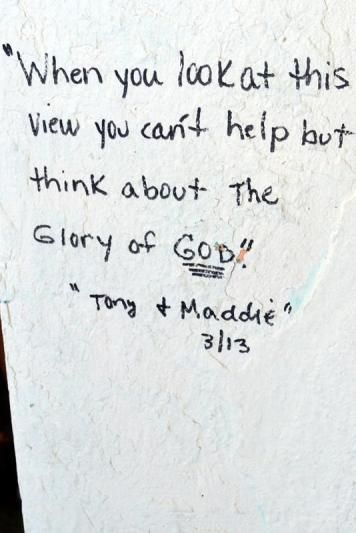 "When you look at this
view you can't help but
think about The
Glory of GOD."
"Tony + Maddie"
3/13